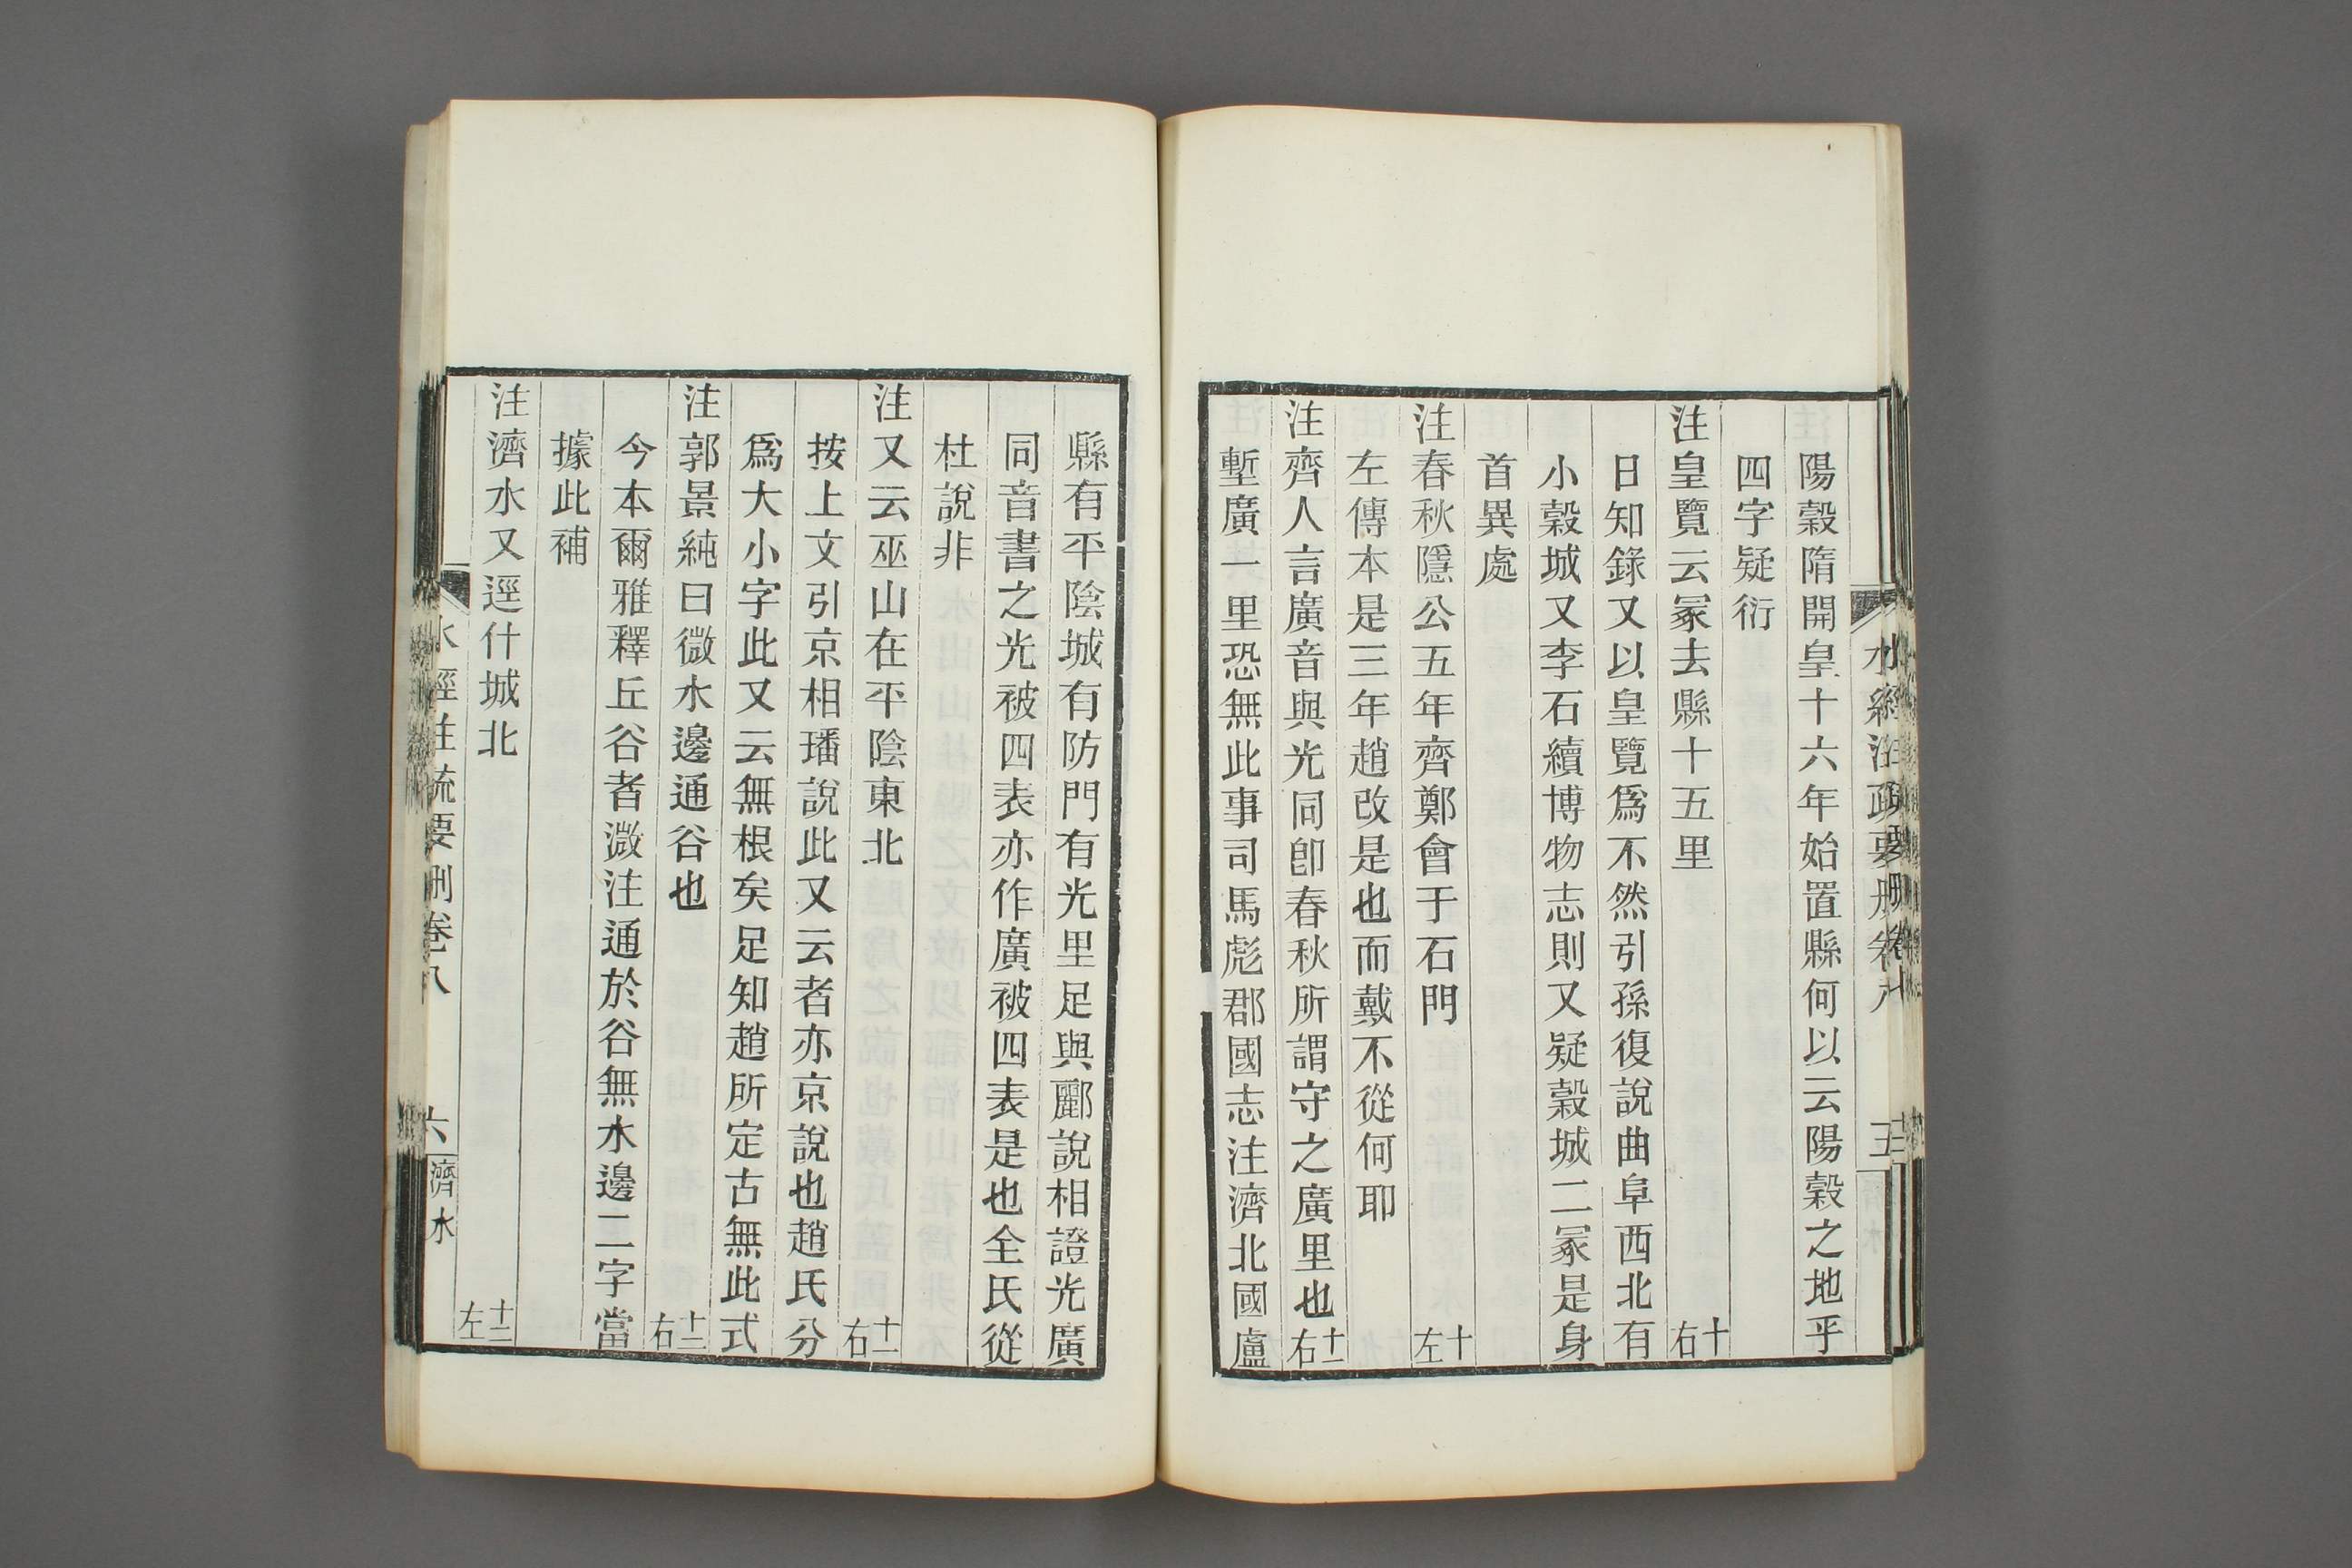 陽穀隋開皇十六年始置縣何以云陽穀之地乎
四字疑衍
注皇覽云冢去縣十五里 十右
日知錄又以皇覽爲不然引孫復說曲阜西北有
小穀城又李石續博物志則又疑穀城二冢是身
首異處
注春秋隱公五年齊鄭會于石門 十左
左傳本是三年趙改是也而戴不從何耶
注齊人言廣音與光同卽春秋所謂守之廣里也 十一右
塹廣一里恐無此事司馬彪郡國志注濟北國盧
縣有平陰城有防門有光里足與酈說相證光廣
同音書之光被四表亦作廣被四表是也全氏從
杜說非
注又云巫山在平陰東北 十一右
按上文引京相璠說此又云者亦京說也趙氏分
爲大小字此又云無根矣足知趙所定古無此式
注郭景純曰微水邊通谷也 十二右
今本爾雅釋丘谷者溦注通於谷無水邊二字當
據此補
注濟水又逕什城北 十二左
水經注疏要刪卷八 六 濟水